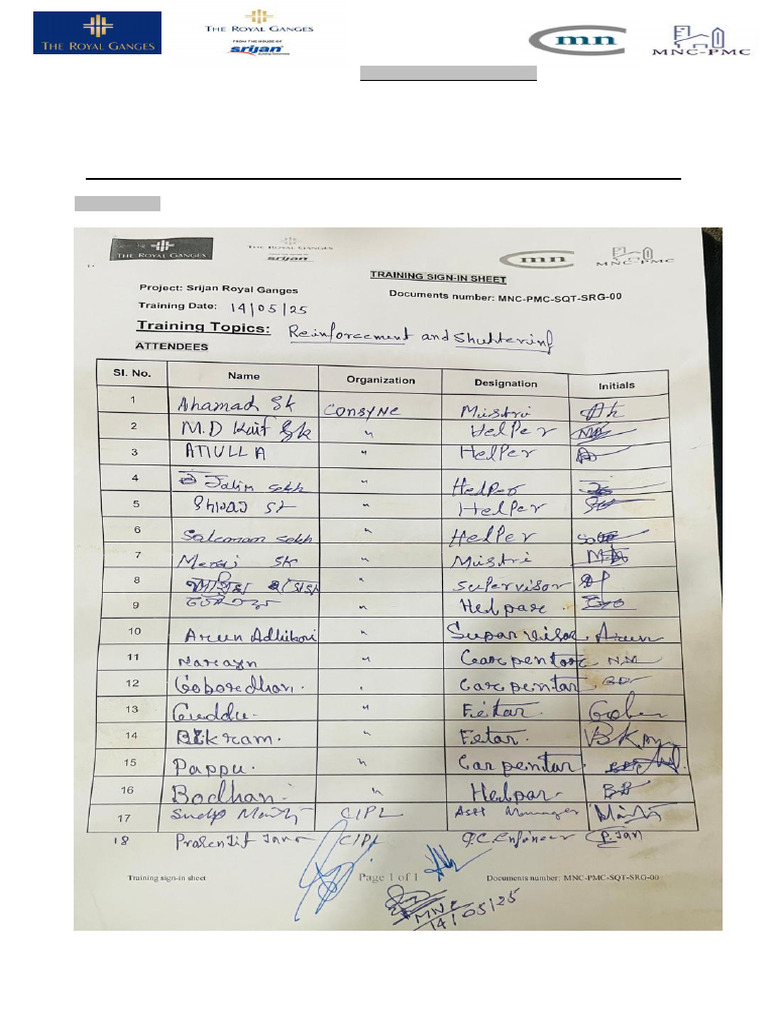 THE ROYAL GANGES
THE ROYAL GANGES
FROM THE HOUSE OF
srijan
mn
MNC-PMC
THE ROYAL GANGES
THE ROYAL GANGES
srijan
mn
MNC-PMC
TRAINING SIGN-IN SHEET
Project: Srijan Royal Ganges
Documents number: MNC-PMC-SQT-SRG-00
Training Date: 14/05/25
Training Topics: Reinforcement and Shuttering
ATTENDEES
Sl. No. Name Organization Designation Initials
1 Ahamad Sk Consyne Mistri Ah
2 M.D Kaif Sk " Helper
3 ATIULLA " Helper
4 Jalim Sekh " Helper
5 Sk " Helper
6 Salemam Sekh " Helper
7 Meraj SK " Mistri
8 " Supervisor
9 " Helpar
10 Arun Adhikari " Suparviser Arun
11 Narayn " Carpentar N.N
12 Goboredhan. " Carpentar
13 Guddu. " Fetar.
14 Bikram. " Fetar. BK
15 Pappu. " Carpentar.
16 Bodhani " Helpar. BB
17 Sudip Maity CIPL Asst Manager
18 Prasenjit Jana CIPL Q.C. Engineer P. Jan
Training sign-in sheet
Page 1 of 1
Documents number: MNC-PMC-SQT-SRG-00
MNC
14/05/25